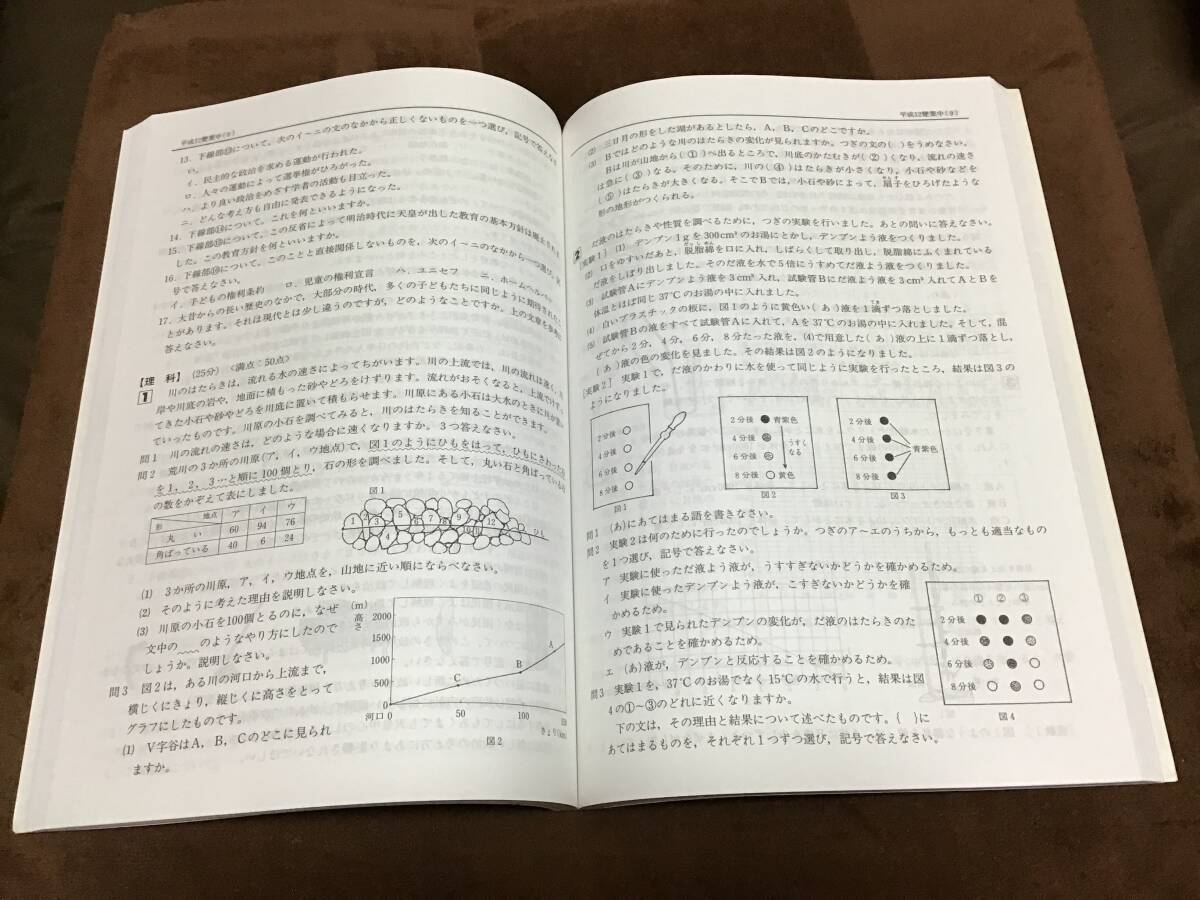 平成12雙葉中(8)
13. 下線部⑬について，次のイ〜ニの文のなかから正しくないものを一つ選び，記号で答えなさ
い。
イ．民主的な政治を求める運動が行われた。
ロ．人々の運動によって選挙権がひろがった。
ハ．より良い政治をめざす学者の活動も目立った。
ニ．どんな考え方も自由に発表できるようになった。
14. 下線部⑭について，これを何といいますか。
15. 下線部⑮について，この反省によって明治時代に天皇が出した教育の基本方針は廃止されま
した。この教育方針を何といいますか。
16. 下線部⑯について，このことと直接関係しないものを，次のイ〜ニのなかから一つ選び，記
号で答えなさい。
イ．子どもの権利条約　ロ．児童の権利宣言　ハ．ユニセフ　ニ．ホームヘルパー
17. 大昔からの長い歴史のなかで，大部分の時代，多くの子どもたちに同じように期待されたこ
とがあります。それは現代とは少し違うのですが，どのようなことですか。上の文章を参考に
答えなさい。
【理　科】（25分）〈満点：50点〉
1　川のはたらきは，流れる水の速さによってちがいます。川の上流では，川の流れは速く，川
岸や川底の岩や，地面に積もった砂やどろをけずります。流れがおそくなると，上流でけずっ
てきた小石や砂やどろを川底に置いて積もらせます。川原にある小石は大水のときに川が置い
ていったものです。川原の小石を調べてみると，川のはたらきを知ることができます。
問1　川の流れの速さは，どのような場合に速くなりますか。3つ答えなさい。
問2　荒川の3か所の川原(ア，イ，ウ地点)で，図1のようにひもをはって，ひもにさわった石
を1，2，3…と順に100個とり，石の形を調べました。そして，丸い石と角ばっている石
の数をかぞえて表にしました。
形　地点　ア　イ　ウ
丸　い　60　94　76
角ばっている　40　6　24
図1
1 2 3 4 5 6 7 8 9 10 11 12 ひも
(1)　3か所の川原，ア，イ，ウ地点を，山地に近い順にならべなさい。
(2)　そのように考えた理由を説明しなさい。
(3)　川原の小石を100個とるのに，なぜ
文中の　のようなやり方にしたので
しょうか。説明しなさい。
問3　図2は，ある川の河口から上流まで，
横じくにきょり，縦じくに高さをとって
グラフにしたものです。
(1)　V字谷はA，B，Cのどこに見られ
ますか。
(m)
高さ
2000
1500
1000
500
0
A
B
C
河口
50
100
きょり(km)
図2
平成12雙葉中(9)
(2)　三日月の形をした湖があるとしたら，A，B，Cのどこですか。
(3)　Bではどのような川のはたらきの変化が見られますか。つぎの文の(　)をうめなさい。
Bは川が山地から(①)へ出るところで，川底のかたむきが(②)くなり，流れの速さ
は急に(③)なる。そのために，川の(④)はたらきが小さくなり，小石や砂などを
(⑤)はたらきが大きくなる。そこでBでは，小石や砂によって，扇子をひろげたような
形の地形がつくられる。
2　だ液のはたらきや性質を調べるために，つぎの実験を行いました。あとの問いに答えなさい。
[実験1]　(1)　デンプン1gを300cm³のお湯にとかし，デンプンよう液をつくりました。
(2)　口をゆすいだあと，脱脂綿を口に入れ，しばらくして取り出し，脱脂綿にふくまれている
だ液をしぼり出しました。そのだ液を水で5倍にうすめてだ液よう液をつくりました。
(3)　試験管Aにデンプンよう液を3cm³入れ，試験管Bにだ液よう液を3cm³入れてAとBを
体温とほぼ同じ37℃のお湯の中に入れました。
(4)　白いプラスチックの板に，図1のように黄色い(あ)液を1滴ずつ落としました。
(5)　試験管Bの液をすべて試験管Aに入れて，Aを37℃のお湯の中に入れました。そして，混
ぜてから2分，4分，6分，8分たった液を，(4)で用意した(あ)液の上に1滴ずつ落とし，
(あ)液の色の変化を見ました。その結果は図2のようになりました。
[実験2]　実験1で，だ液のかわりに水を使って同じように実験を行ったところ，結果は図3の
ようになりました。
2分後
4分後
6分後
8分後
図1
2分後　青紫色
4分後　うすく
6分後　なる
8分後　黄色
図2
2分後
4分後
6分後　青紫色
8分後
図3
問1　(あ)にあてはまる語を書きなさい。
問2　実験2は何のために行ったのでしょうか。つぎのア〜エのうちから，もっとも適当なもの
を1つ選び，記号で答えなさい。
ア　実験に使っただ液よう液が，うすすぎないかどうかを確かめるため。
イ　実験に使ったデンプンよう液が，こすぎないかどうかを確
かめるため。
ウ　実験1で見られたデンプンの変化が，だ液のはたらきのた
めであることを確かめるため。
エ　(あ)液が，デンプンと反応することを確かめるため。
問3　実験1を，37℃のお湯でなく15℃の水で行うと，結果は図
4の①〜③のどれに近くなりますか。
下の文は，その理由と結果について述べたものです。(　)に
あてはまるものを，それぞれ1つずつ選び，記号で答えなさい。
①　②　③
2分後
4分後
6分後
8分後
図4